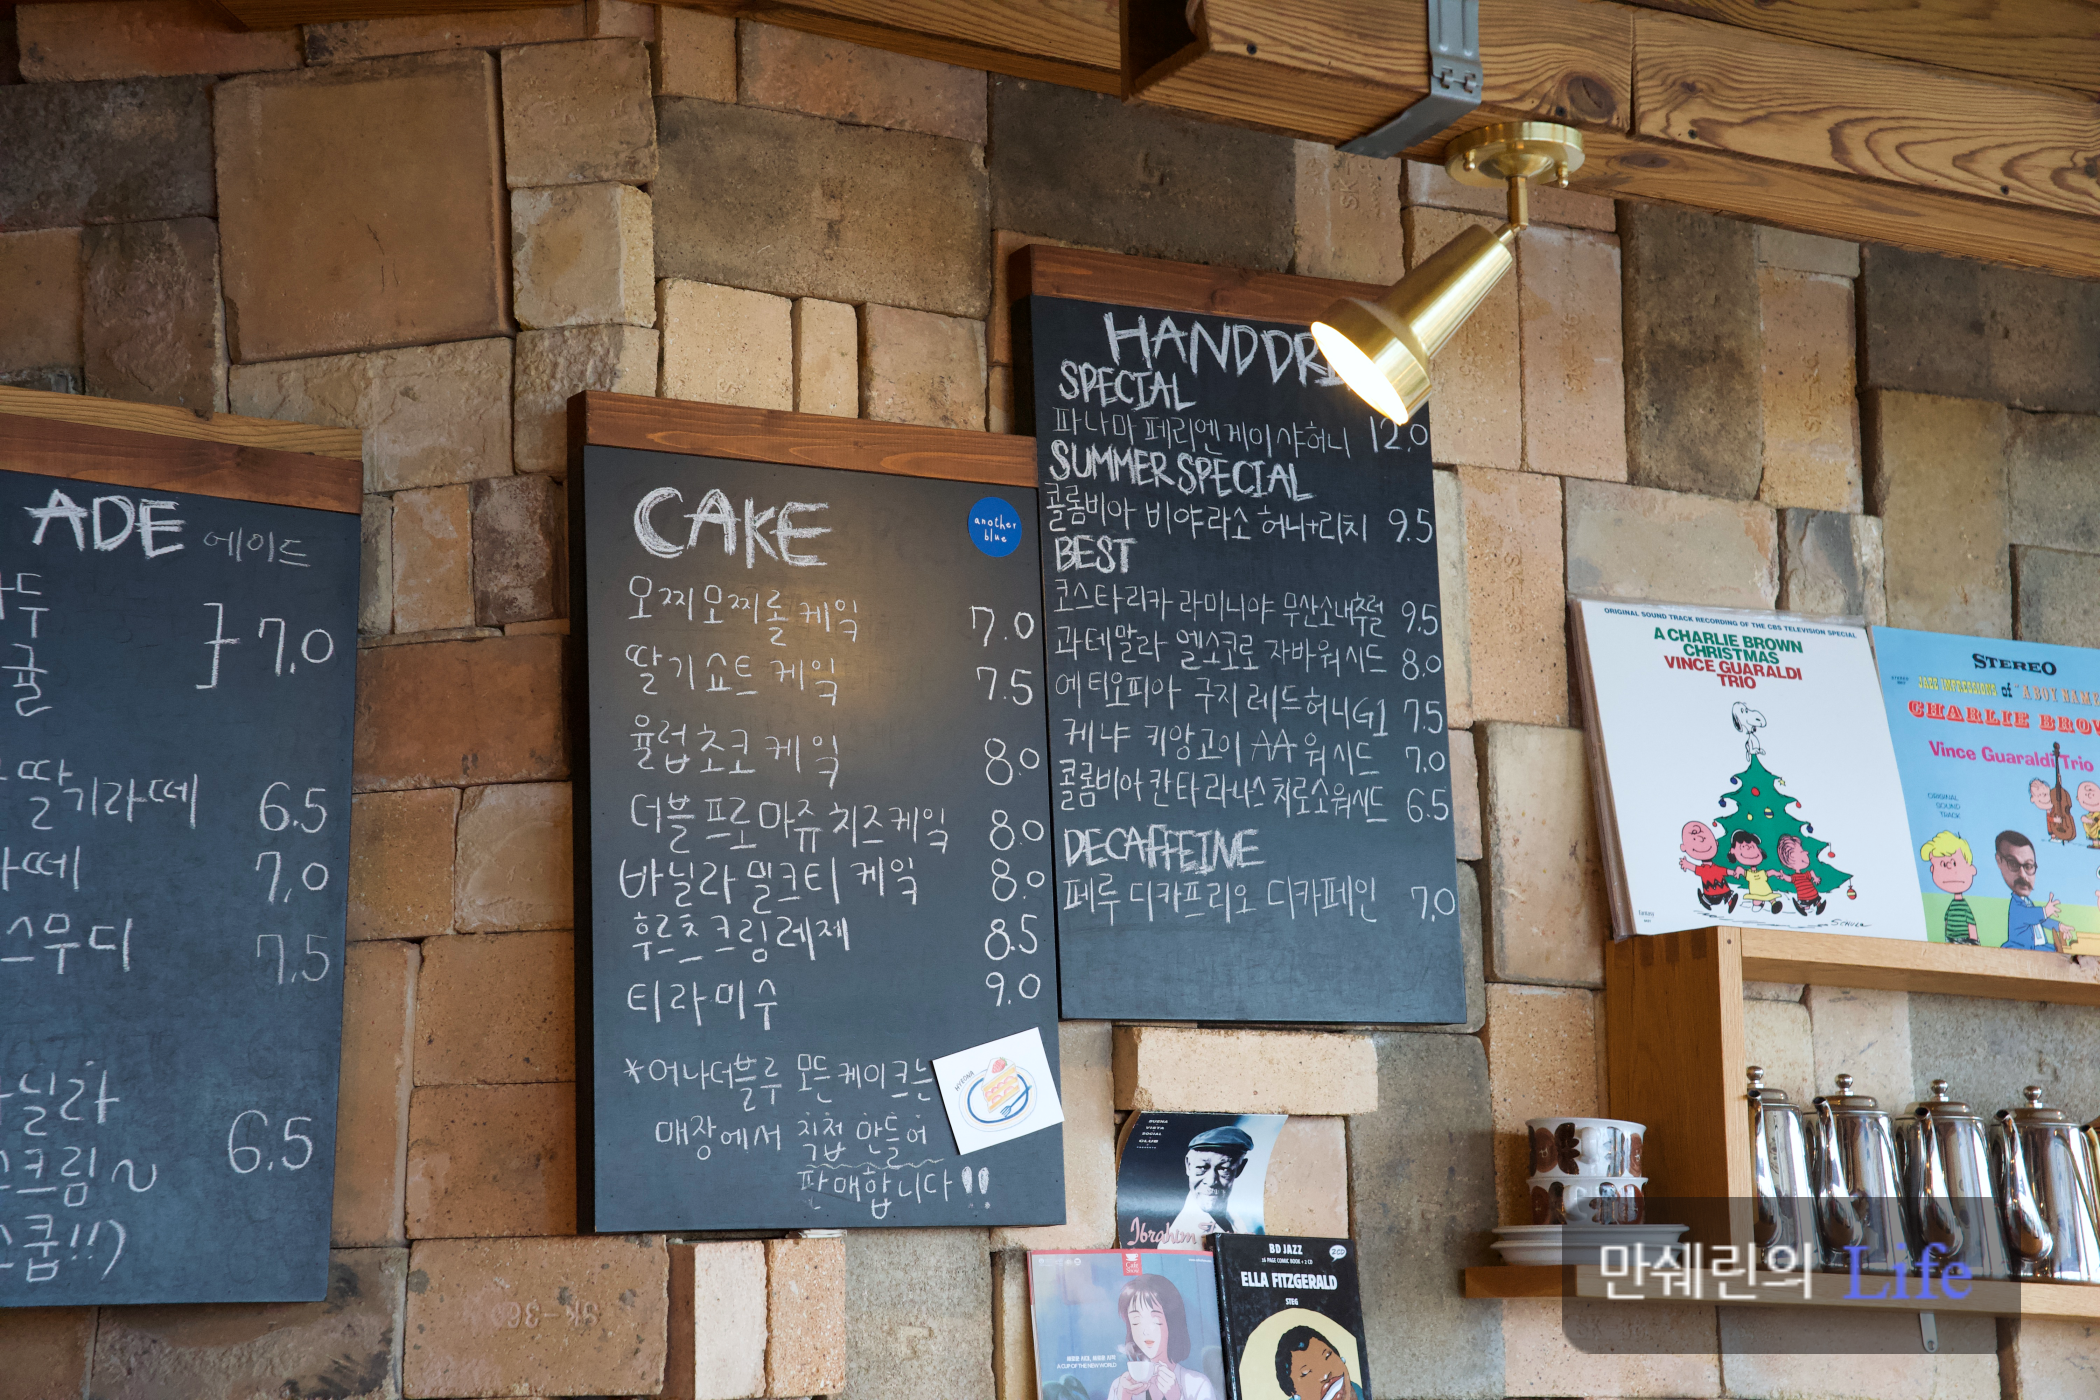 ADE 에이드
귤
7.0
딸기라떼 6.5
라떼 7.0
스무디 7.5
바닐라
6.5
CAKE
another
blue
오찌모찌롤케잌 7.0
딸기쇼트케잌 7.5
율럽초코케잌 8.0
더블프로마쥬치즈케잌 8.0
바닐라밀크티케잌 8.0
후르츠크림레제 8.5
티라미수 9.0
*어나더블루 모든케이크는
매장에서 직접 만들어
판매합니다!!
HYEONA
HANDDR
SPECIAL
파나마 페리엔게이샤허니 12.0
SUMMER SPECIAL
콜롬비아 비야라소 허니+리치 9.5
BEST
코스타리카 라미니야 무산소내추럴 9.5
과테말라 엘소코로 자바워시드 8.0
에티오피아 구지레드허니G1 7.5
케냐 키앙고이 AA 워시드 7.0
콜롬비아칸타라나스치로소워시드 6.5
DECAFFEINE
페루 디카프리오 디카페인 7.0
ORIGINAL SOUND TRACK RECORDING OF THE CBS TELEVISION SPECIAL
A CHARLIE BROWN
CHRISTMAS
VINCE GUARALDI
TRIO
STEREO
JAZZ IMPRESSIONS of "A BOY NAME
CHARLIE BROW
Vince Guaraldi Trio
ORIGINAL
SOUND
TRACK
BUENA
VISTA
SOCIAL
CLUB
Ibrahim
BD JAZZ
2CD
ELLA FITZGERALD
STEG
A CUP OF THE NEW WORLD
만쉐린의 Life